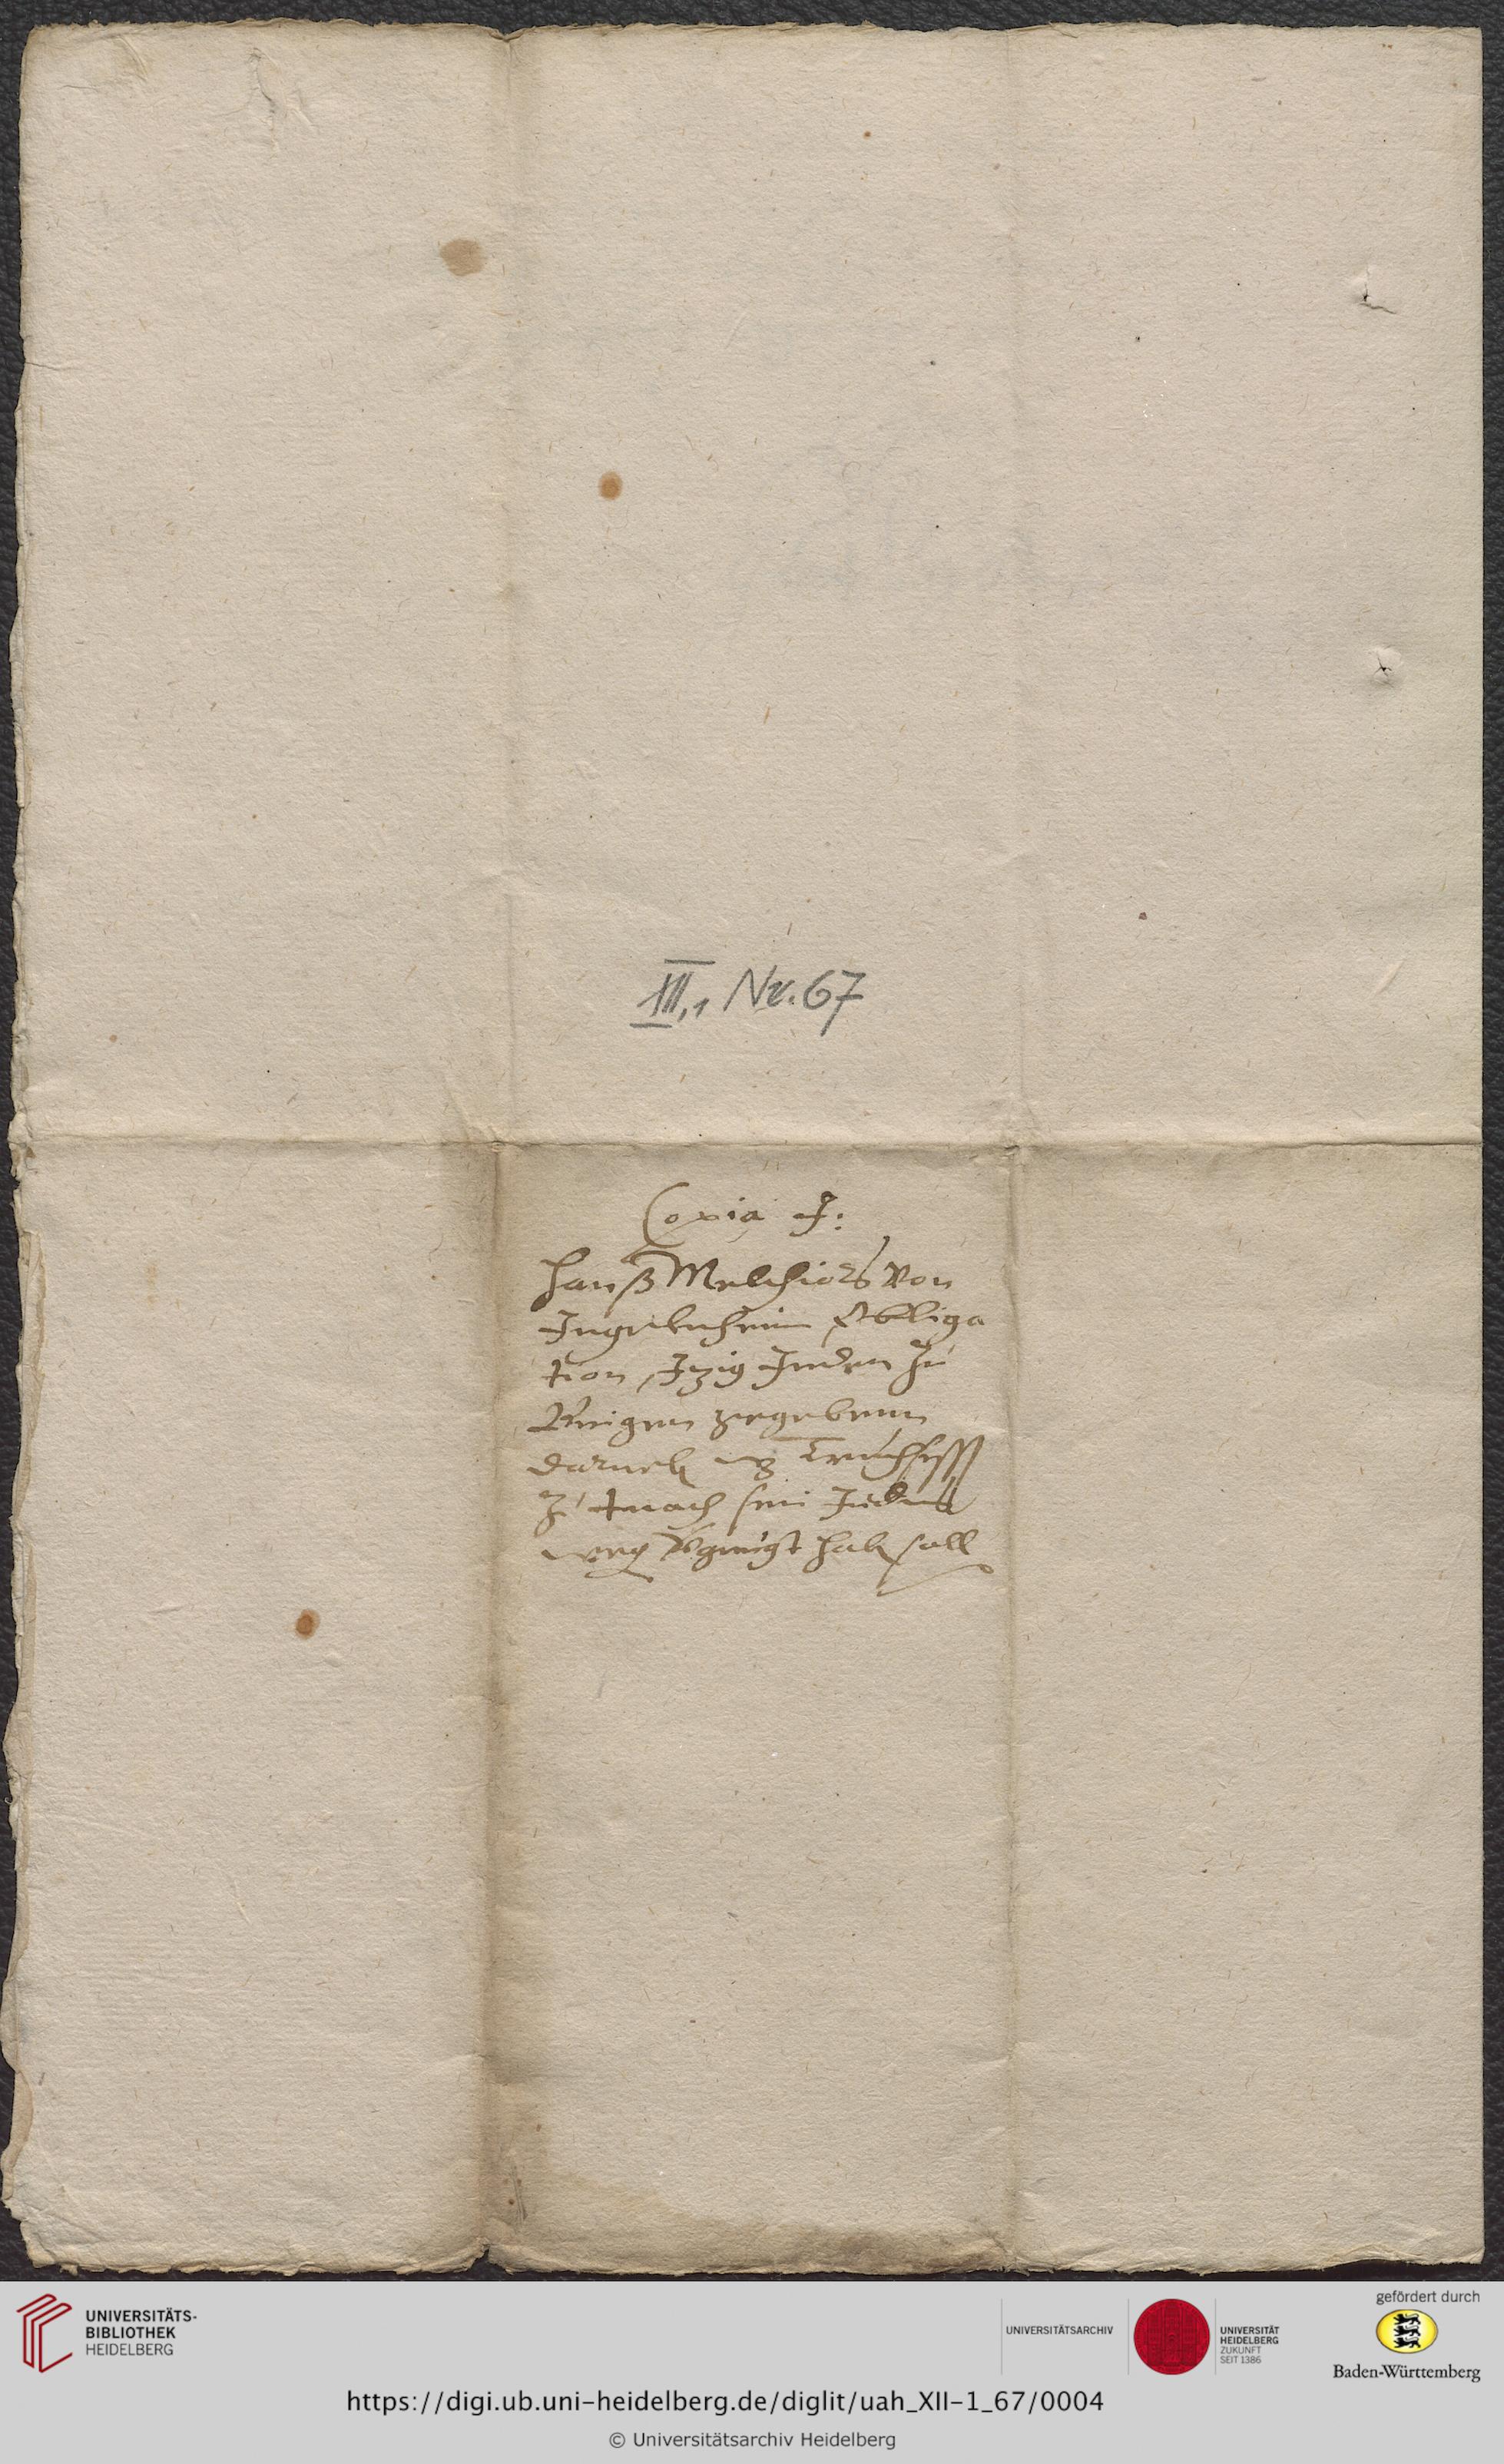 XII,1 Nr. 67
Copia J:
Hanß Melchiors von
Ingelnheim Obliga
tion, Itzig Juden zu
Bingen gegebenn
Truchsess
Juden
soll
UNIVERSITÄTS-
BIBLIOTHEK
HEIDELBERG
UNIVERSITÄTSARCHIV
UNIVERSITÄT
HEIDELBERG
ZUKUNFT
SEIT 1386
gefördert durch
Baden-Württemberg
https://digi.ub.uni-heidelberg.de/diglit/uah_XII-1_67/0004
© Universitätsarchiv Heidelberg